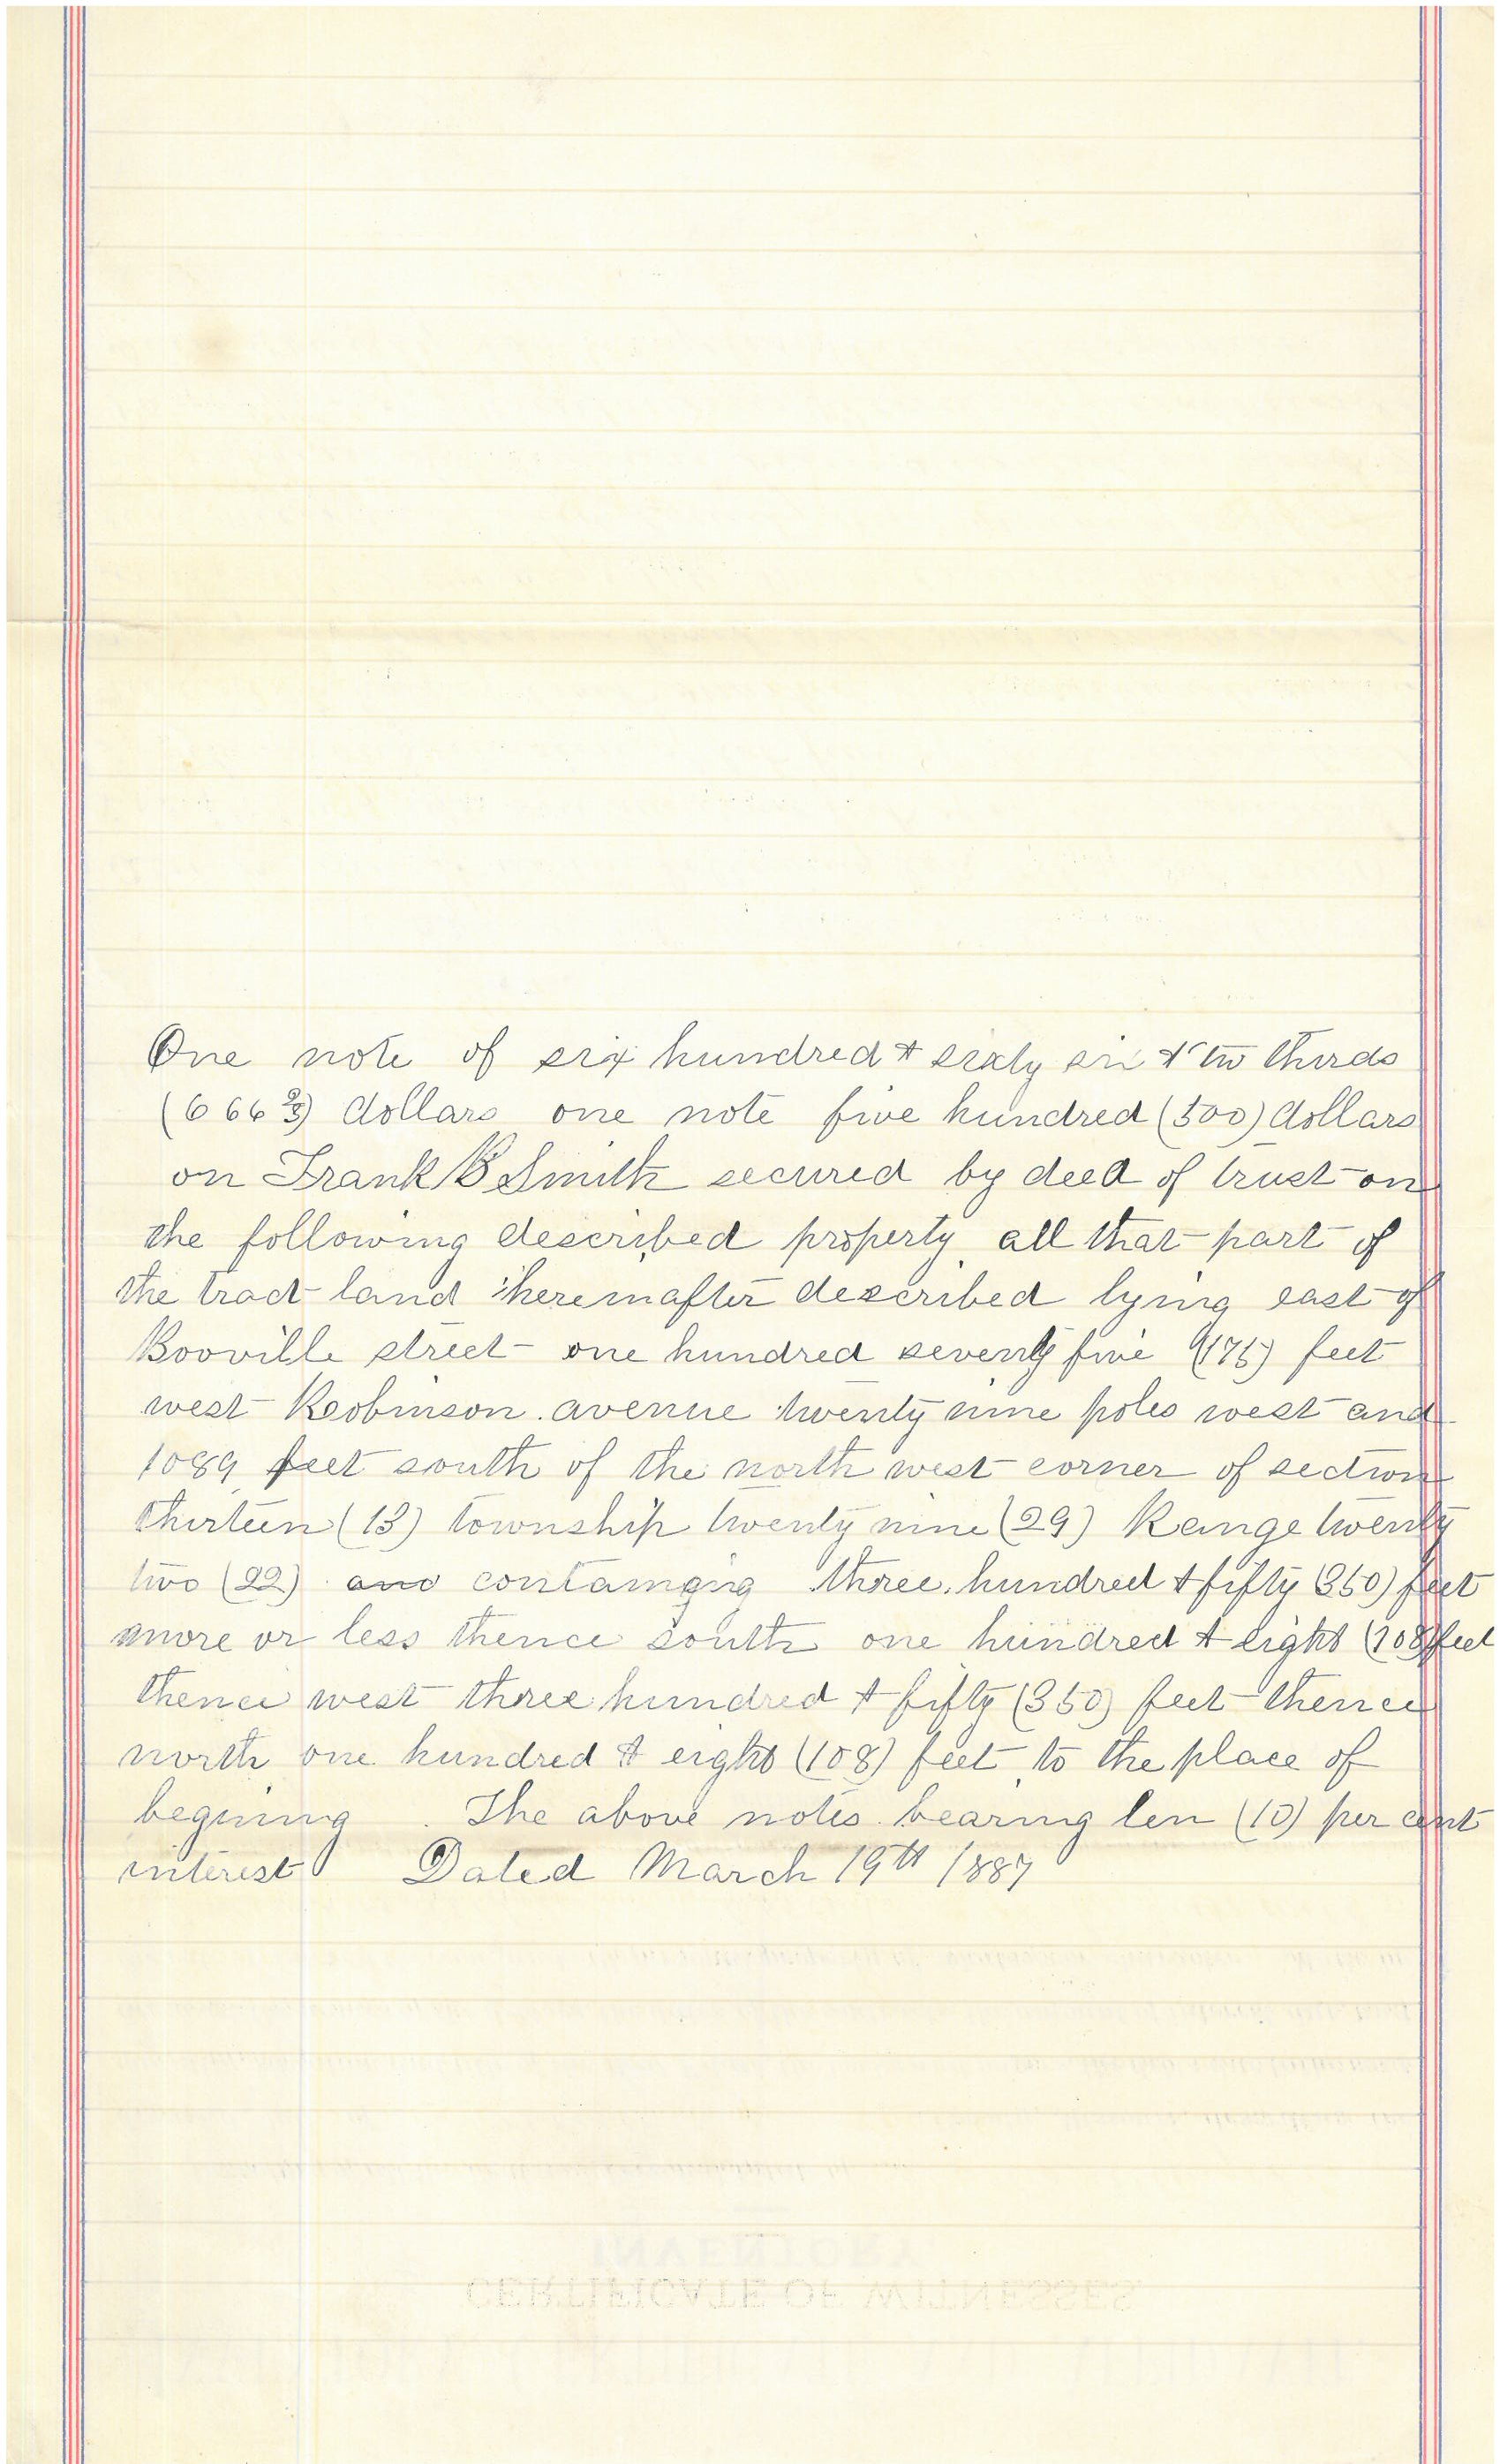 One note of six hundred & sixty six & two thirds
(666 2/3) dollars one note five hundred (500) dollars
on Frank B Smith secured by deed of trust on
the following described property all that part of
the tract land hereinafter described lying east of
Booville street one hundred seventy five (175) feet
west Robinson avenue twenty nine poles west and
1089 feet south of the north west corner of section
thirteen (13) township twenty nine (29) Range twenty
two (22) and containing three hundred & fifty (350) feet
more or less thence south one hundred & eight (108) feet
thence west three hundred & fifty (350) feet thence
north one hundred & eight (108) feet to the place of
begining . The above notes bearing ten (10) per cent
interest Dated March 19th 1887
INVENTORY
CERTIFICATE OF WITNESSES